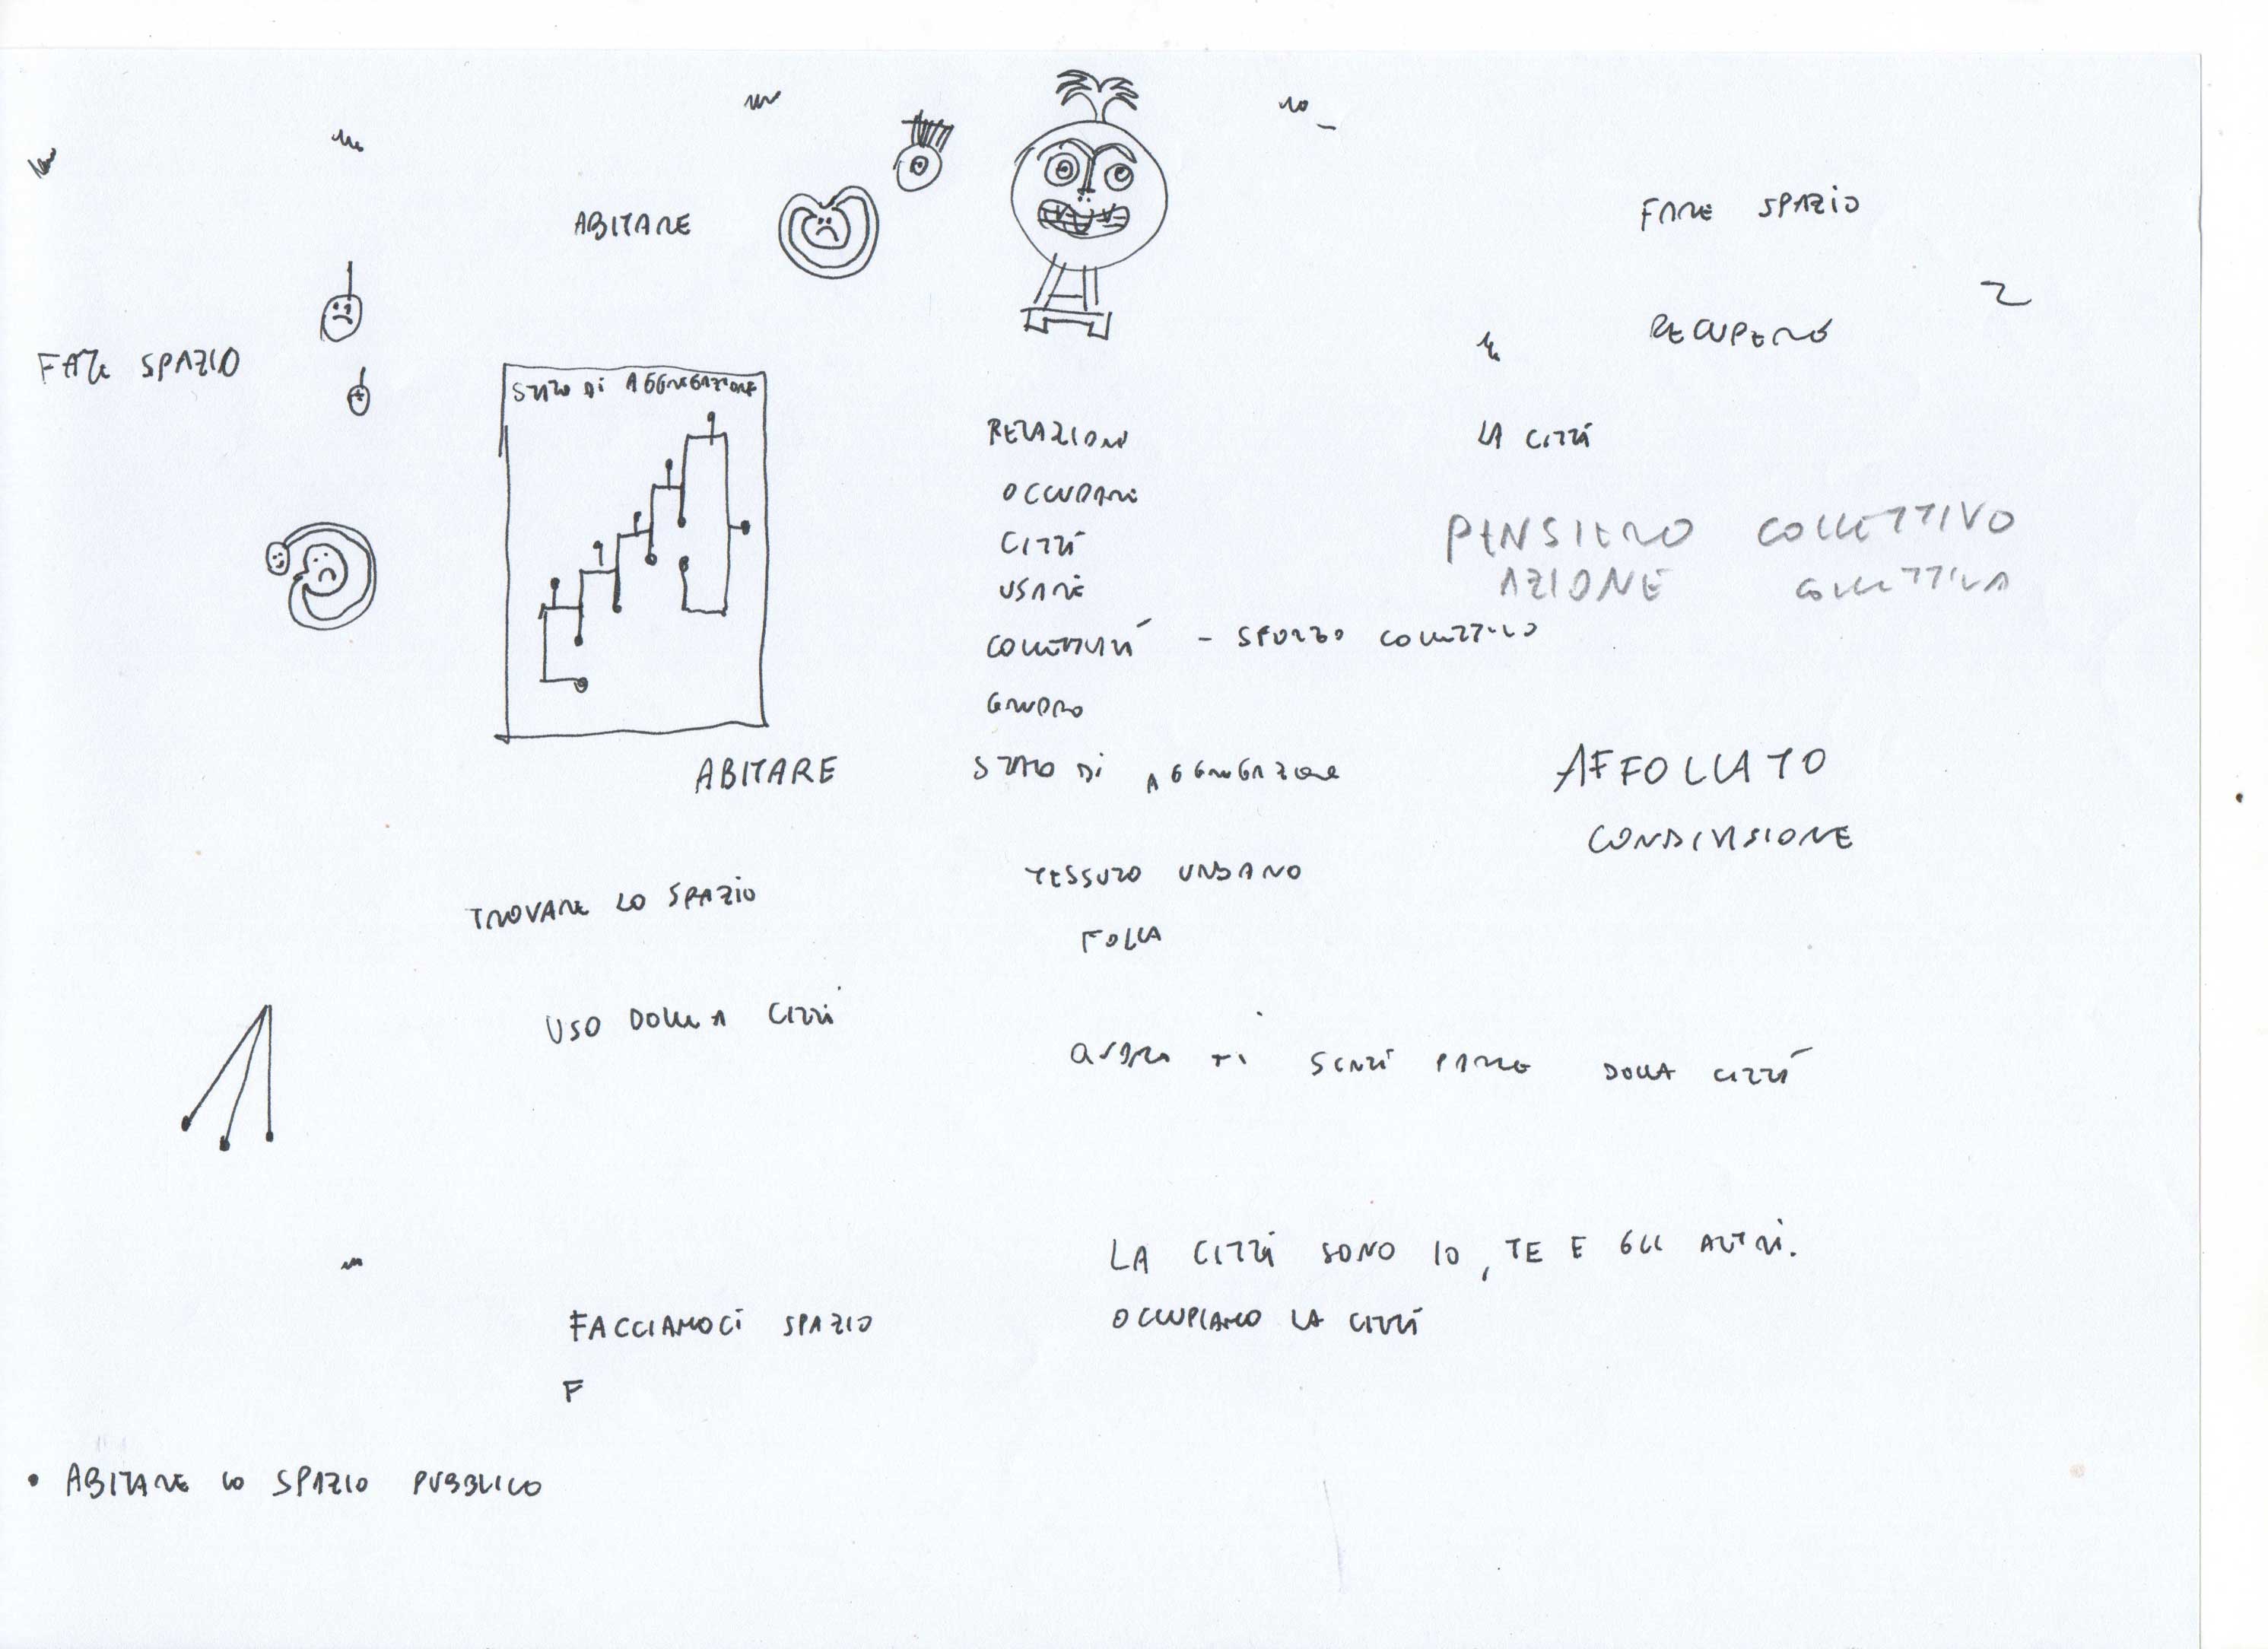 ABITARE
FARE SPAZIO
RECUPERO
FARE SPAZIO
STATO DI AGGREGAZIONE
RELAZIONI
LA CITTÀ
CITTÀ
USARE
PENSIERO COLLETTIVO
AZIONE COLLETTIVA
COLLETTIVITÀ - SFORZO COLLETTIVO
GRUPPO
ABITARE
STATO DI AGGREGAZIONE
AFFOLLATO
CONDIVISIONE
TESSUTO URBANO
TROVARE LO SPAZIO
FOLLA
USO DELLA CITTÀ
TI SENTI PARTE DELLA CITTÀ
LA CITTÀ SONO IO, TE E GLI ALTRI.
FACCIAMOCI SPAZIO
OCCUPIAMO LA CITTÀ
F
• ABITARE LO SPAZIO PUBBLICO